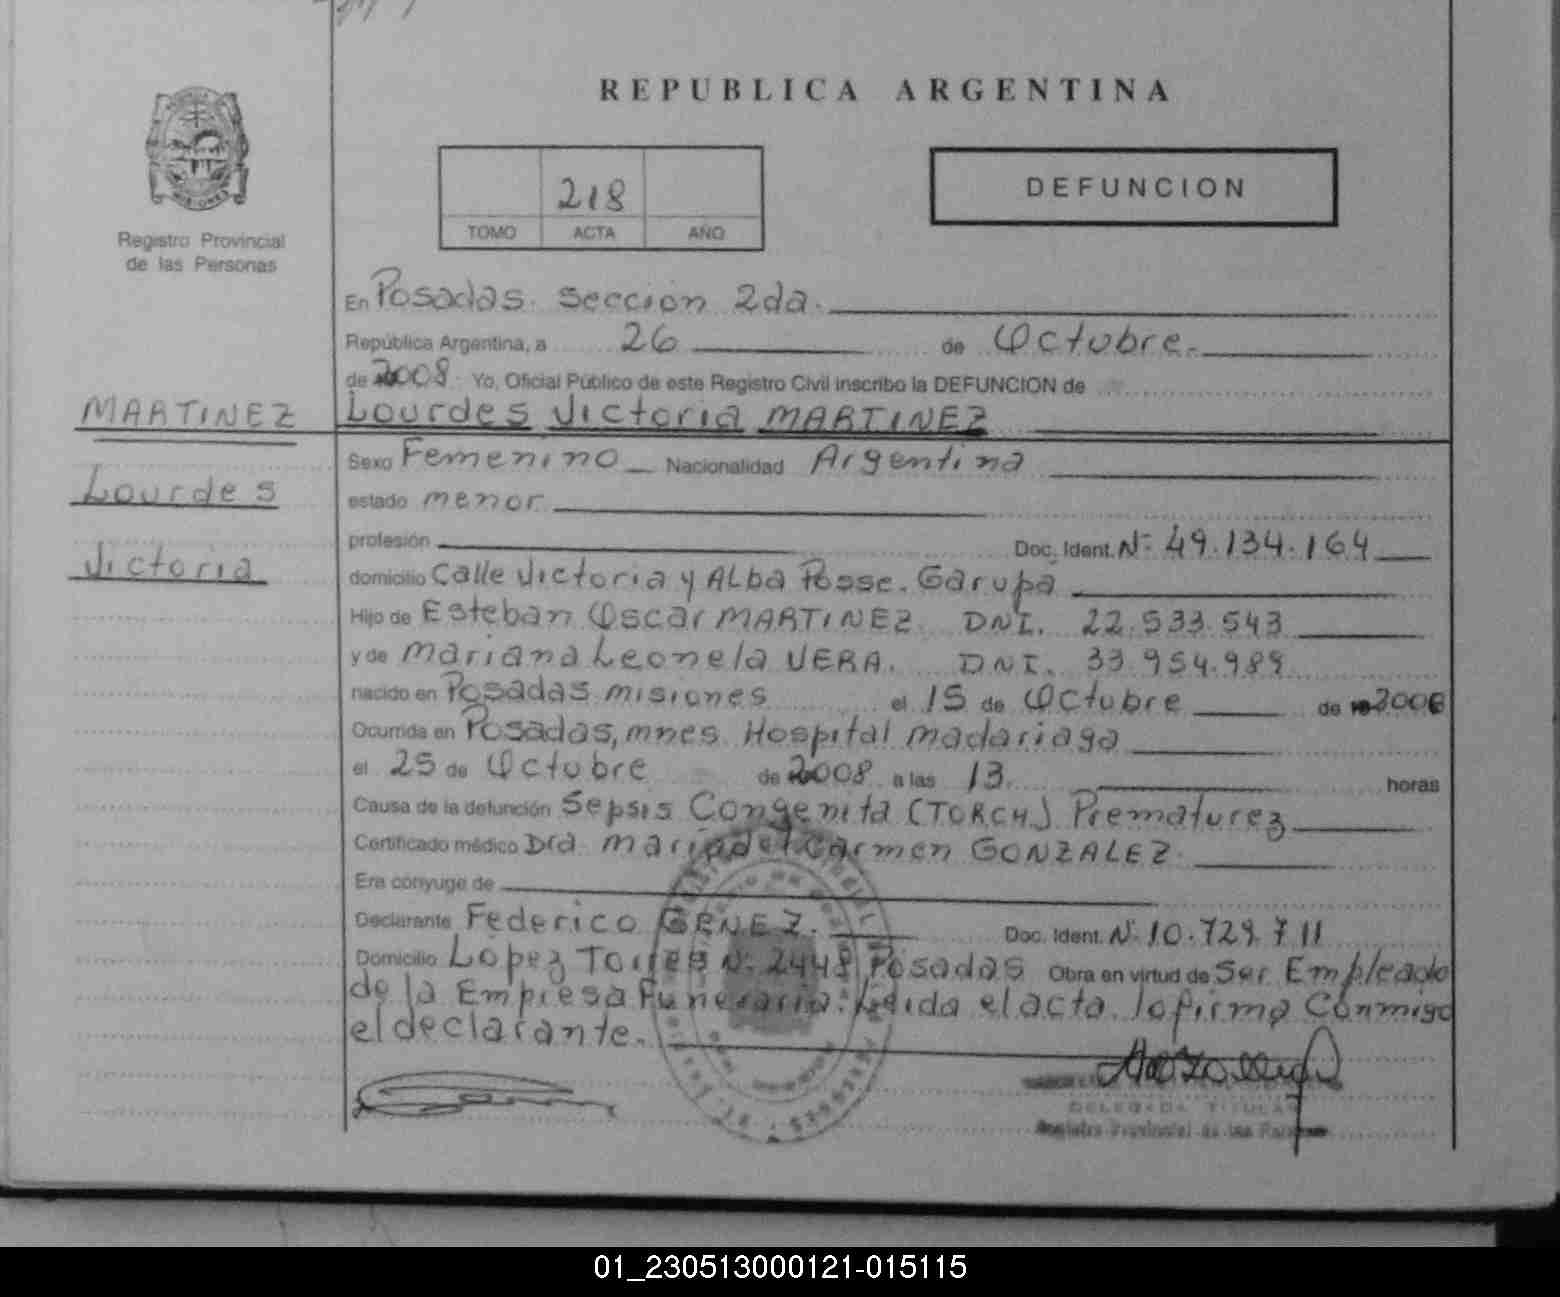 REPUBLICA ARGENTINA
MISIONES
Registro Provincial
de las Personas
218
TOMO ACTA AÑO
DEFUNCION
En Posadas. sección 2da.
República Argentina, a 26 de Octubre.
de 2008. Yo, Oficial Público de este Registro Civil inscribo la DEFUNCION de
MARTINEZ Lourdes Victoria MARTINEZ
Sexo Femenino Nacionalidad Argentina
Lourdes
estado menor
profesión Doc. Ident. Nº 49.134.164
Victoria
domicilio Calle Victoria y ALba Posse. Garupá
Hijo de Esteban Oscar MARTINEZ. DNI. 22.533.543
y de Mariana Leonela VERA. DNI. 33.954.989
nacido en Posadas misiones el 15 de Octubre de 2008
Ocurrida en Posadas, mnes. Hospital madariaga
el 25 de Octubre de 2008 a las 13. horas
Causa de la defunción Sepsis Congenita (TORCH) Prematurez
Certificado médico Dra. Maria del Carmen GONZALEZ.
Era cónyuge de
Declarante Federico GENEZ. Doc. Ident. Nº 10.729.711
Domicilio López Torres Nº 2448 Posadas Obra en virtud de Ser Empleado
de la Empresa Funeraria. Leida el acta. lo firma Conmigo
el declarante.
DELEGADA TITULAR
Registro Provincial de las Personas
01_230513000121-015115